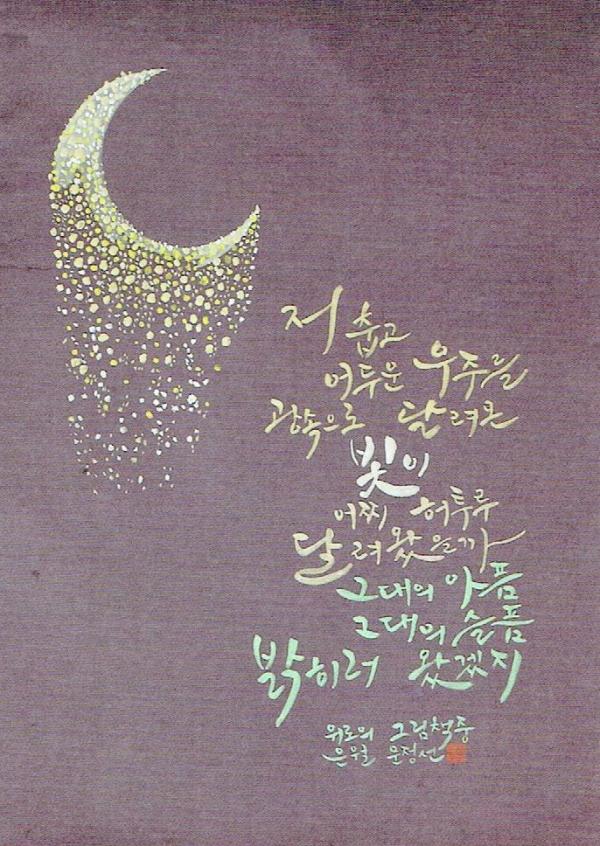 저 춥고
어두운 우주를
광속으로 달려온
빛이
어찌 허투루
달려왔을까
그대의 아픔
그대의 슬픔
밝히러 왔겠지
위로의 그림책중
은월 문정선